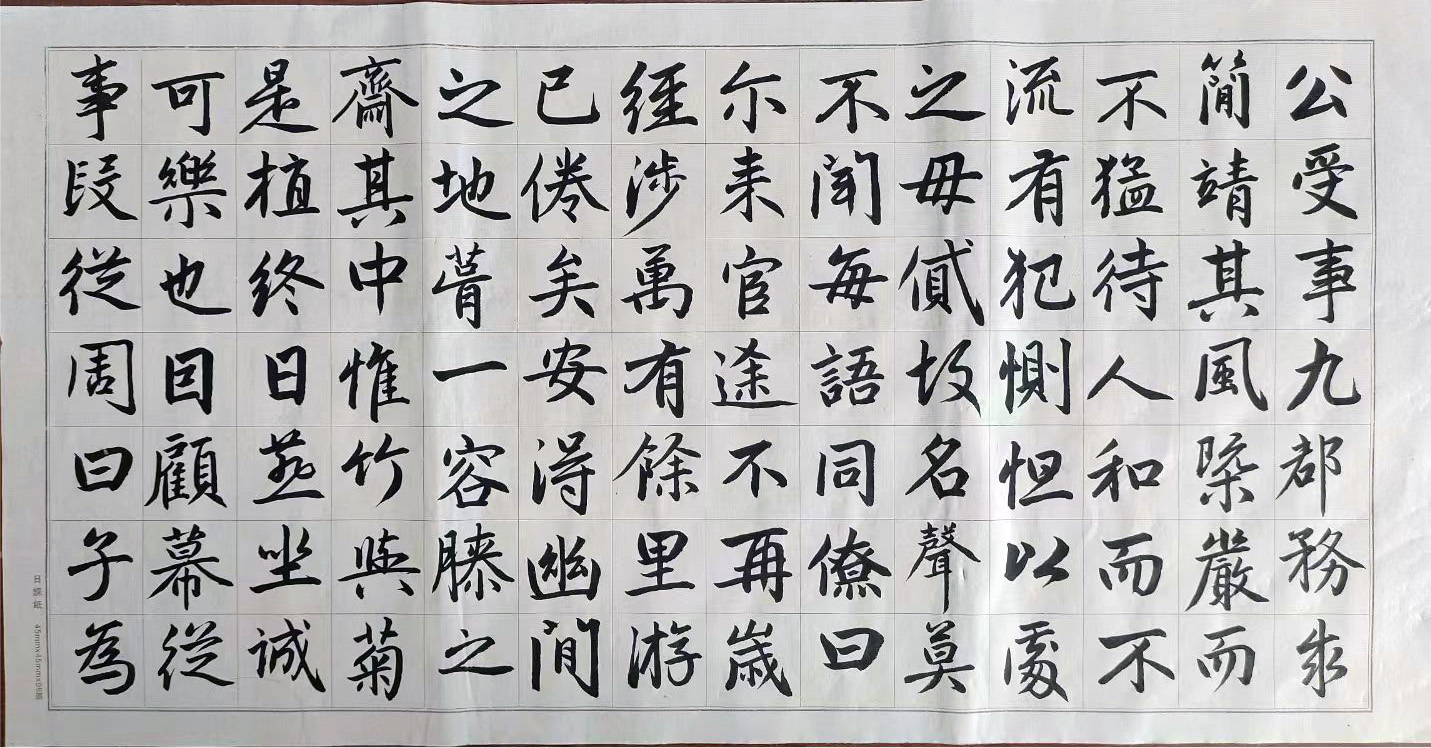 公受事九都務求
簡靖其風槩嚴而
不猛待人和而不
流有犯惻怛以處
之毋貳故名聲莫
不聞每語同僚曰
尒耒官途不再歲
經涉萬有餘里游
已倦矣安得幽閒
之地葺一容膝之
齋其中惟竹與菊
是植終日燕坐誠
可樂也因顧幕從
事段從周曰子為
日課紙 45mmx45mmx98格